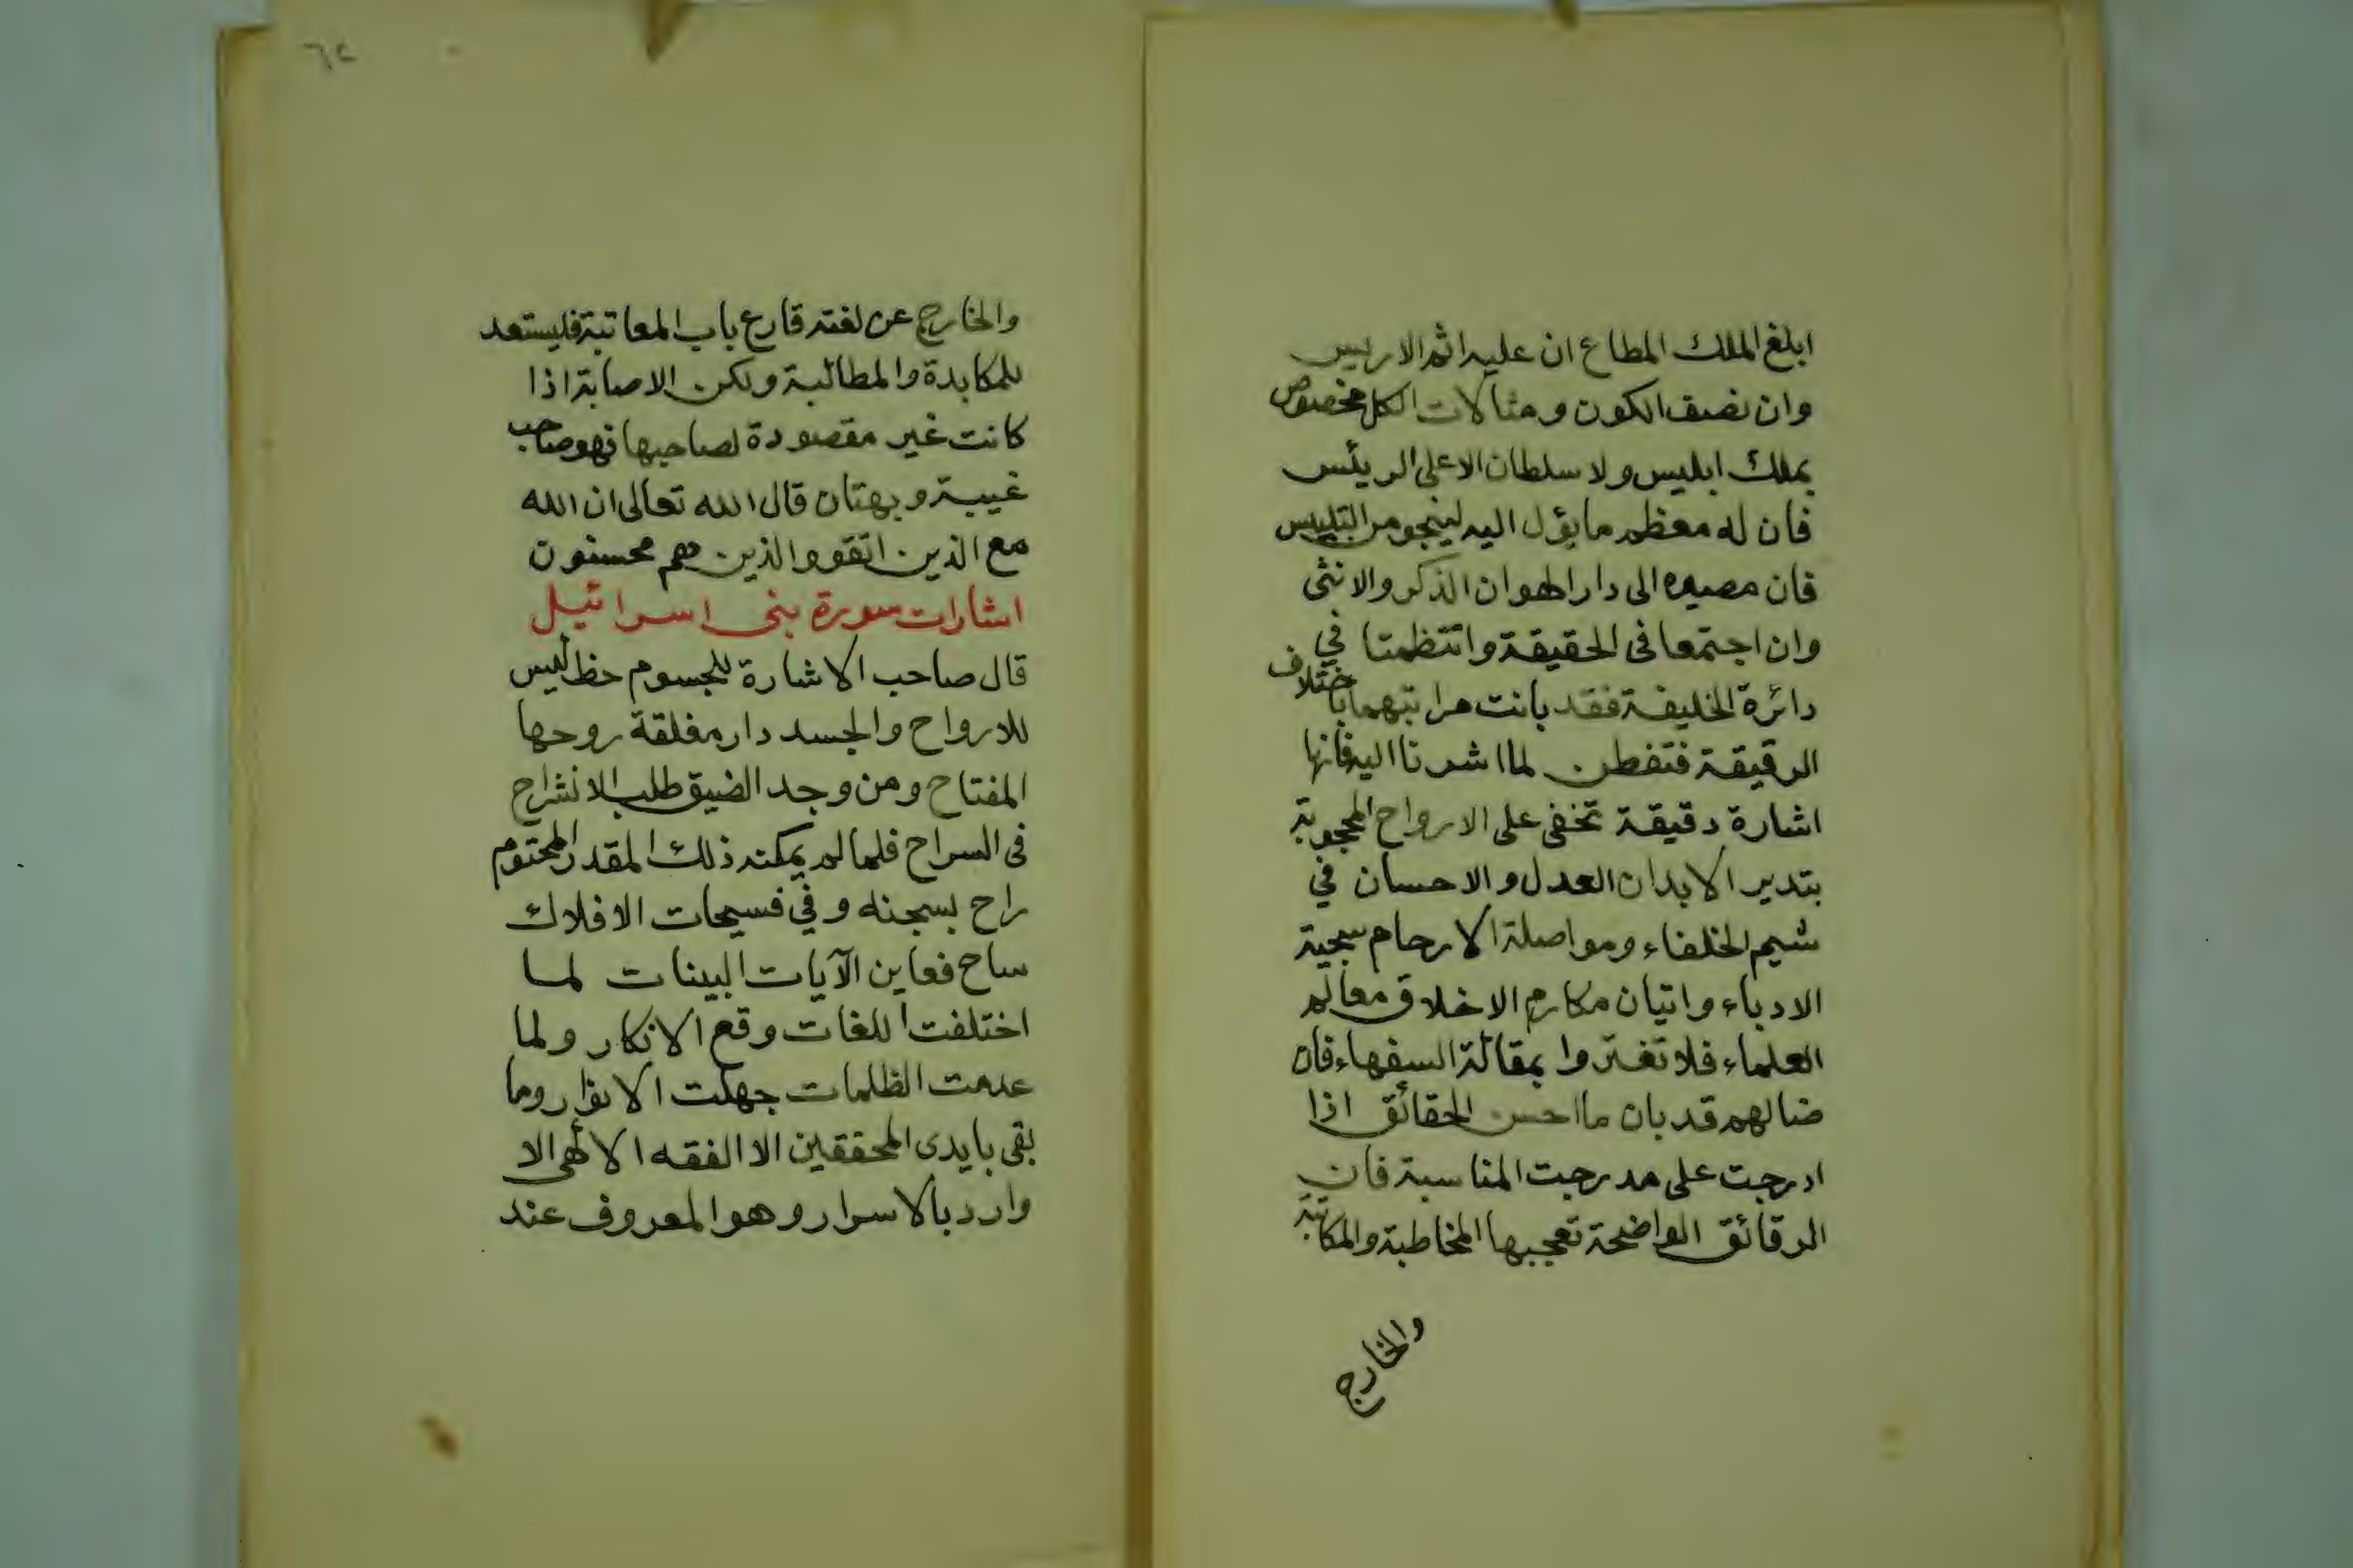 ابلغ الملك المطاع ان عليه اثم الاريس
وان نصف الكون ومثالات الكل مخصوص
بملك ابليس ولا سلطان الاعلى الرئيس
فان له معظم ما يؤل اليه لينجو من التلبيس
فان مصيره الى دار الهوان الذكر والانثى
وان اجتمعا فى الحقيقة وانتظمتا في
دائرة الخليفة فقد بانت مراتبهما باختلاف
الرقيقة فتفطن لما اشرنا اليه فانها
اشارة دقيقة تخفى على الارواح المحجوبة
بتدبير الابدان العدل والاحسان في
شيم الخلفاء ومواصلة الارحام سجية
الادباء واتيان مكارم الاخلاق معالم
العلماء فلا تغتروا بمقالة السفهاء فان
ضالهم قد بان ما احسن الحقائق اذا
ادرجت على مدرجت المناسبة فان
الرقائق الواضحة تعجبها المخاطبة والمكاتبة
والخارج
٦٢
والخارج عن لغته قارع باب المعاتبة فليستعد
للمكابدة والمطالبة ولكن الاصابة اذا
كانت غير مقصودة لصاحبها فهو صاحب
غيبة وبهتان قال الله تعالى ان الله
مع الذين اتقو والذين هم محسنون
اشارات سورة بنى اسرائيل
قال صاحب الاشارة للجسوم حظ ليس
للارواح والجسد دار مغلقة روحها
المفتاح ومن وجد الضيق طلب الانشراح
فى السراح فلما لم يمكنه ذلك المقدر المحتوم
راح بسجنه وفي فسيحات الافلاك
ساح فعاين الآيات البينات لما
اختلفت اللغات وقع الانكار ولما
عدمت الظلمات جهلت الانوار وما
بقى بايدى المحققين الا الفقه الالهى الا
وارد بالاسرار وهو المعروف عند